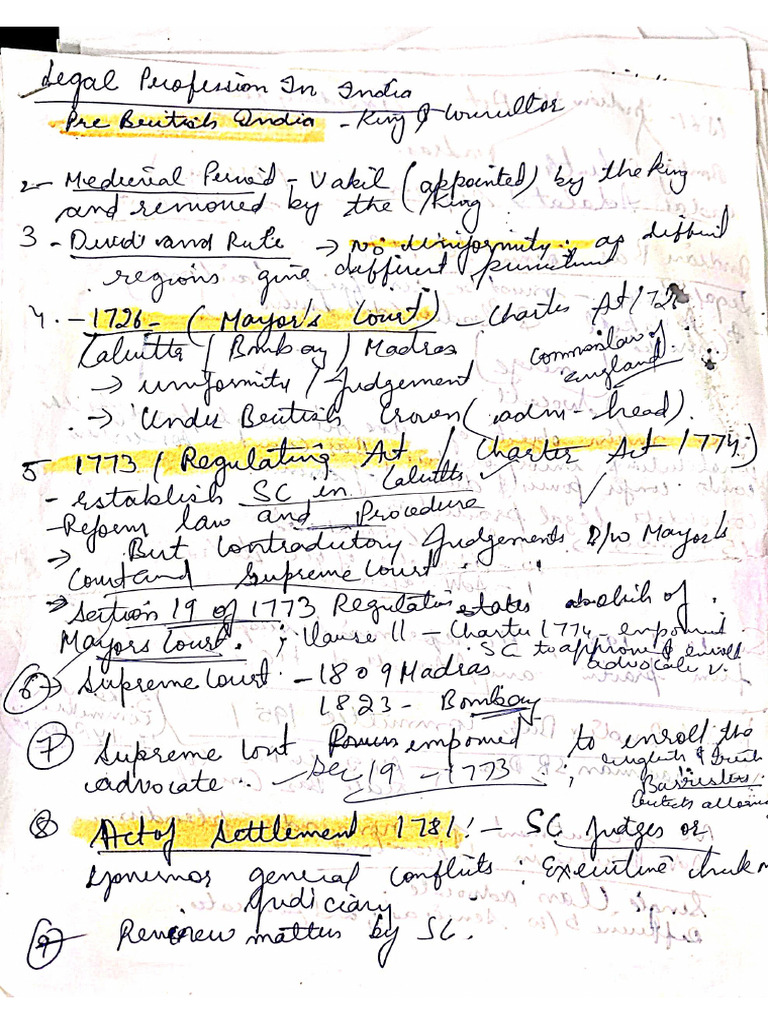 Legal Profession In India
Pre British India - King & Councillor
2 - Medieval Period - Vakil (appointed) by the King
and removed by the King
3 - Divide and Rule → no uniformity as different
regions give different
4. - 1726 - (Mayor's Court) - Charter Act 172
Calcutta / Bombay / Madras
Common law of England
→ uniformity / Judgement
→ Under British Crown (adm - head).
5 1773 (Regulating Act / Charter Act 1774)
- establish SC in Calcutta
- Reform law and Procedure
→ But Contradictory Judgements b/w Mayor's
Court and Supreme Court.
→ Section 19 of 1773 Regulating states abolish of
Mayors Court. ; Clause 11 - Charter 1774 - empowered
SC to approve & enroll
advocate
6 → Supreme Court - 1809 Madras
1823 - Bombay
7 Supreme Court Powers empowered to enroll the
advocate. - Sec 19 - 1773 ;
english &
Barristers
8 Act of Settlement 1781 :- SC Judges or
governor general conflicts. Executive check
Judiciary
9 Review matters by SC.